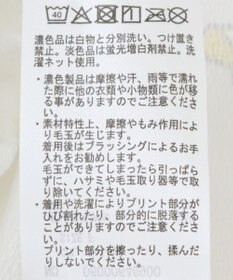 40
濃色品は白物と分別洗い。つけ置き
禁止。淡色品は蛍光増白剤禁止。洗
濯ネット使用。
・濃色製品は摩擦や汗、雨等で濡れ
た際に他の衣類や小物類に色が移
る事がありますのでご注意くださ
い。
・素材特性上、摩擦やもみ作用によ
り毛玉が生じます。
着用後はブラッシングによるお手
入れをお勧めします。
毛玉ができてしまったら引っぱら
ずに、ハサミや毛玉取り器等で取
り除いてください。
・着用や洗濯によりプリント部分が
ひび割れたり、部分的に脱落する
ことがありますのでご注意くださ
い。
プリント部分を擦ったり、揉んだ
りしないでください。